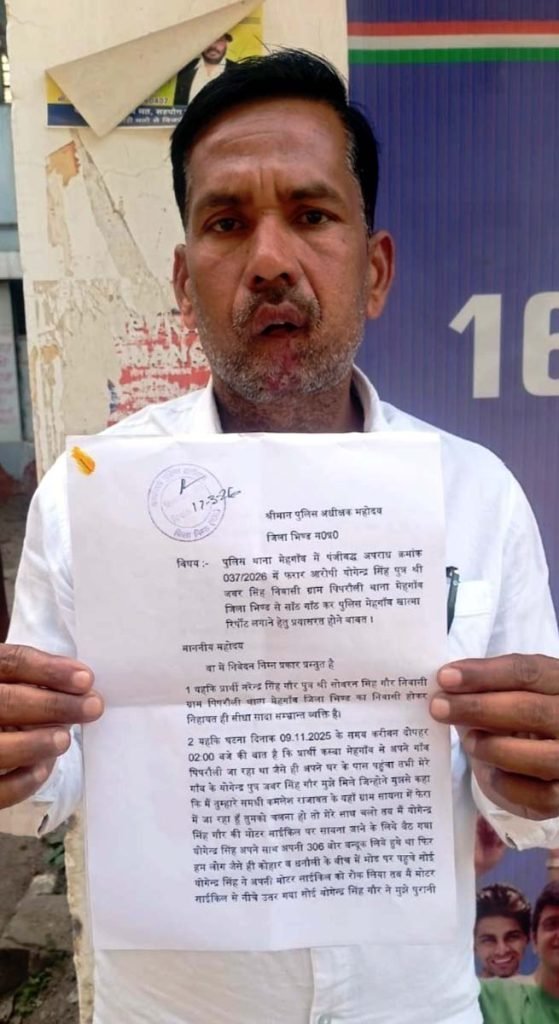 16
17-3-26
श्रीमान पुलिस अधीक्षक महोदव
जिला भिण्ड म0प्र0
विषय :- पुलिस थाना मेहगाँव में पंजीबद्ध अपराध क्रमांक
037/2026 में फरार आरोपी योगेन्द्र सिंह पुत्र श्री
जबर सिंह निवासी ग्राम पिपरौली थाना मेहगाँव
जिला भिण्ड से साँठ गाँठ कर पुलिस मेहगाँव खात्मा
रिर्पोट लगाने हेतु प्रयासरत होने बावत ।
माननीय महोदय
निवेदन निम्न प्रकार प्रस्तुत है
1 यहकि प्रार्थी नरेन्द्र सिंह गौर पुत्र श्री सोबरन सिंह गौर निवासी
ग्राम पिपरौली थाना मेहगाँव जिला भिण्ड का निवासी होकर
निहायत ही सीधा सादा सम्भ्रान्त व्यक्ति है।
2 यहकि घटना दिनाक 09.11.2025 के समय करीबन दोपहर
02:00 बजे की बात है कि प्रार्थी कस्बा मेहगाँव से अपने गाँव
पिपरौली जा रहा था जैसे ही अपने घर के पास पहुंचा तभी मेरे
गाँव के योगेन्द्र पुत्र जबर सिंह गौर मुझे मिले जिन्होने मुझसे कहा
कि मैं तुम्हारे समधी कमलेश राजावत के यहाँ ग्राम सायना में फेरा
में जा रहा हूँ तुमको चलना हो तो मेरे साथ चलो तब मैं योगेन्द्र
सिंह गौर की मोटर साईकिल पर सायना जाने के लिये बैठ गया
योगेन्द्र सिंह अपने साथ अपनी 306 बोर बन्दूक लिये हुये था फिर
हम लोग जैसे ही कोहार व धनौली के बीच में मोड पर पहुचे सोई
योगेन्द्र सिंह ने अपनी मोटर साईकिल को रोक लिया तब मैं मोटर
साईकिल से नीचे उतर गया सोई योगेन्द्र सिंह गौर ने मुझे पुरानी